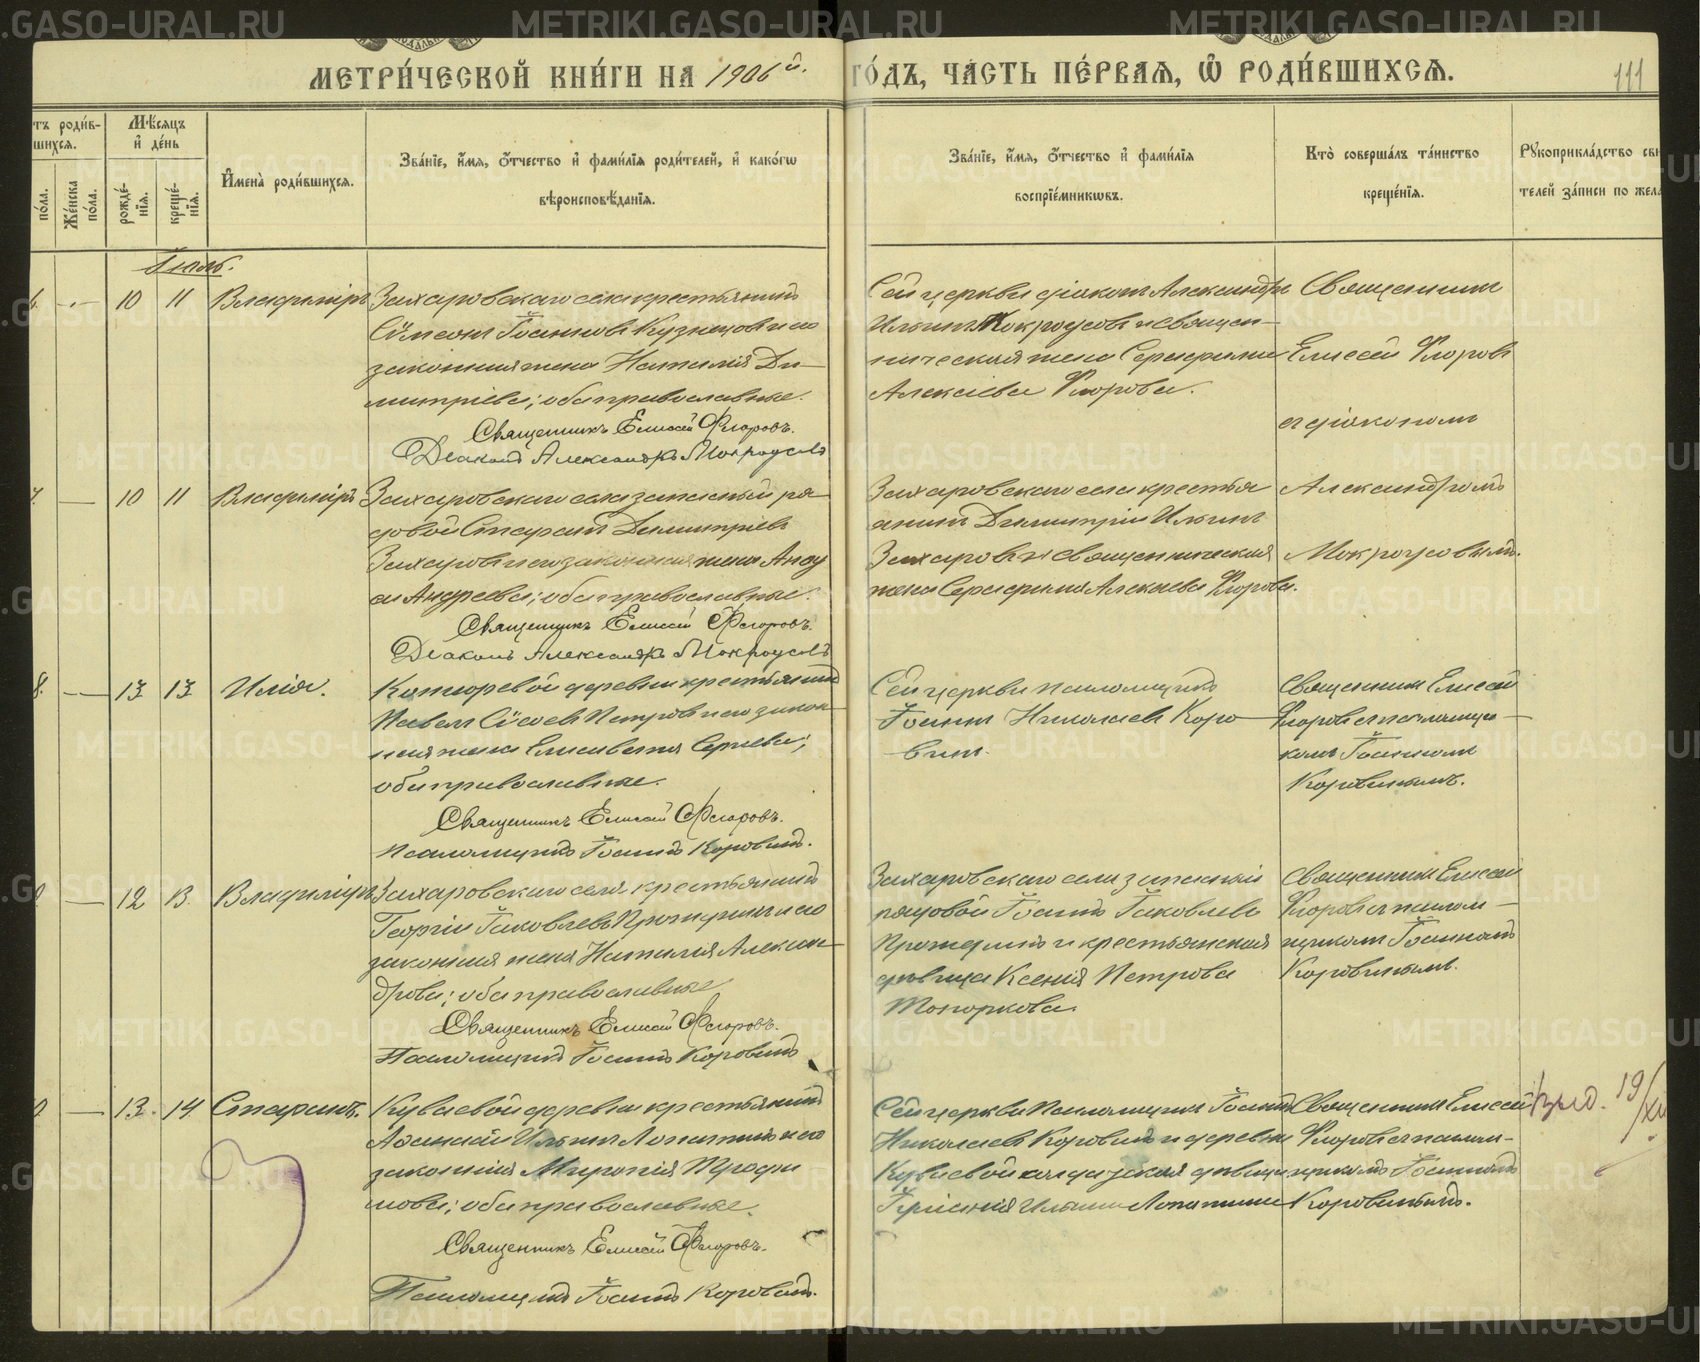 МЕТРИ́ЧЕСКОЙ КНИ́ГИ НА 1906й. ГО́ДЪ, ЧА́СТЬ ПЕ́РВАЯ, Ѡ҆ РОДИ́ВШИХСЯ.
111
тъ роди́в-
шихся.
Мѣ́сяцъ
и҆ де́нь
по́ла.
Же́нска
по́ла.
рожде́-
нїя.
креще́-
нїя.
И҆мена̀ роди́вшихся.
Зва́нїе, и҆́мя, ѻ҆́тчество и҆ фами́лїя роди́телей, и҆ како́гѡ
вѣроисповѣ́данїя.
Зва́нїе, и҆́мя, ѻ҆́тчество и҆ фами́лїя
воспрїе́мникѡвъ.
Кто̀ соверша́лъ та́инство
креще́нїя.
Рꙋкоприкла́дство сви
телей за́писи по жела
Іюль.
10 11 Владиміръ
Захаровскаго села крестьянинъ
Сѷмеонъ Іоанновъ Кузнецовъ и его
законная жена Наталія Ди-
митріева; оба православные.
Священникъ Елисей Флоровъ.
Діаконъ Александръ Мокроусовъ
Сей церкви діаконъ Александръ
Ильинъ Мокроусовъ и священ-
ническая жена Серафима
Алексіева Флорова.
Священникъ
Елисей Флоровъ
съ діакономъ
Александромъ
Мокроусовымъ.
10 11 Владиміръ
Захаровскаго села запасный ря-
довой Стафанъ Димитріевъ
Захаровъ и его законная жена
Андреева; оба православные.
Священникъ Елисей Флоровъ.
Діаконъ Александръ Мокроусовъ
Захаровскаго села крестья
анинъ Димитрій Ильинъ
Захаровъ и священническая
жена Серафима Алексіева Флорова.
8. — 13 13 Илія.
деревни крестьянинъ
Павелъ Сѷсоевъ Петровъ и его закон-
ная жена Елисавета Сергіева;
оба православные.
Священникъ Елисей Флоровъ.
Псаломщикъ Іоаннъ Коровинъ.
Сей церкви псаломщикъ
Іоаннъ Николаевъ Коро-
винъ.
Священникъ Елисей
Флоровъ съ псаломщи-
комъ Іоанномъ
Коровинымъ.
— 12 13. Владиміръ
Захаровскаго села крестьянинъ
Георгій Іаковлевъ и его
законная жена Наталія Алексан-
дрова; оба православные.
Священникъ Елисей Флоровъ.
Псаломщикъ Іоаннъ Коровинъ
Захаровскаго села запасный
рядовой Іоаннъ Іаковлевъ
и крестьянская
дѣвица Ксенія Петрова
Топоркова.
Священникъ Елисей
Флоровъ съ псалом-
щикомъ Іоанномъ
Коровинымъ.
— 13. 14 Стафанъ.
Куваевой деревни крестьянинъ
Аѳанасій Ильинъ Лопатинъ и его
законная Миропія Трофи
мова; оба православные.
Священникъ Елисей Флоровъ.
Псаломщикъ Іоаннъ Коровинъ.
Сей церкви Псаломщикъ Іоаннъ
Николаевъ Коровинъ и деревни
Куваевой дѣвица
Ильина Лопатина
Священникъ Елисей
Флоровъ съ псалом-
щикомъ Іоанномъ
Коровинымъ.
19/XII
METRIKI.GASO-URAL.RU